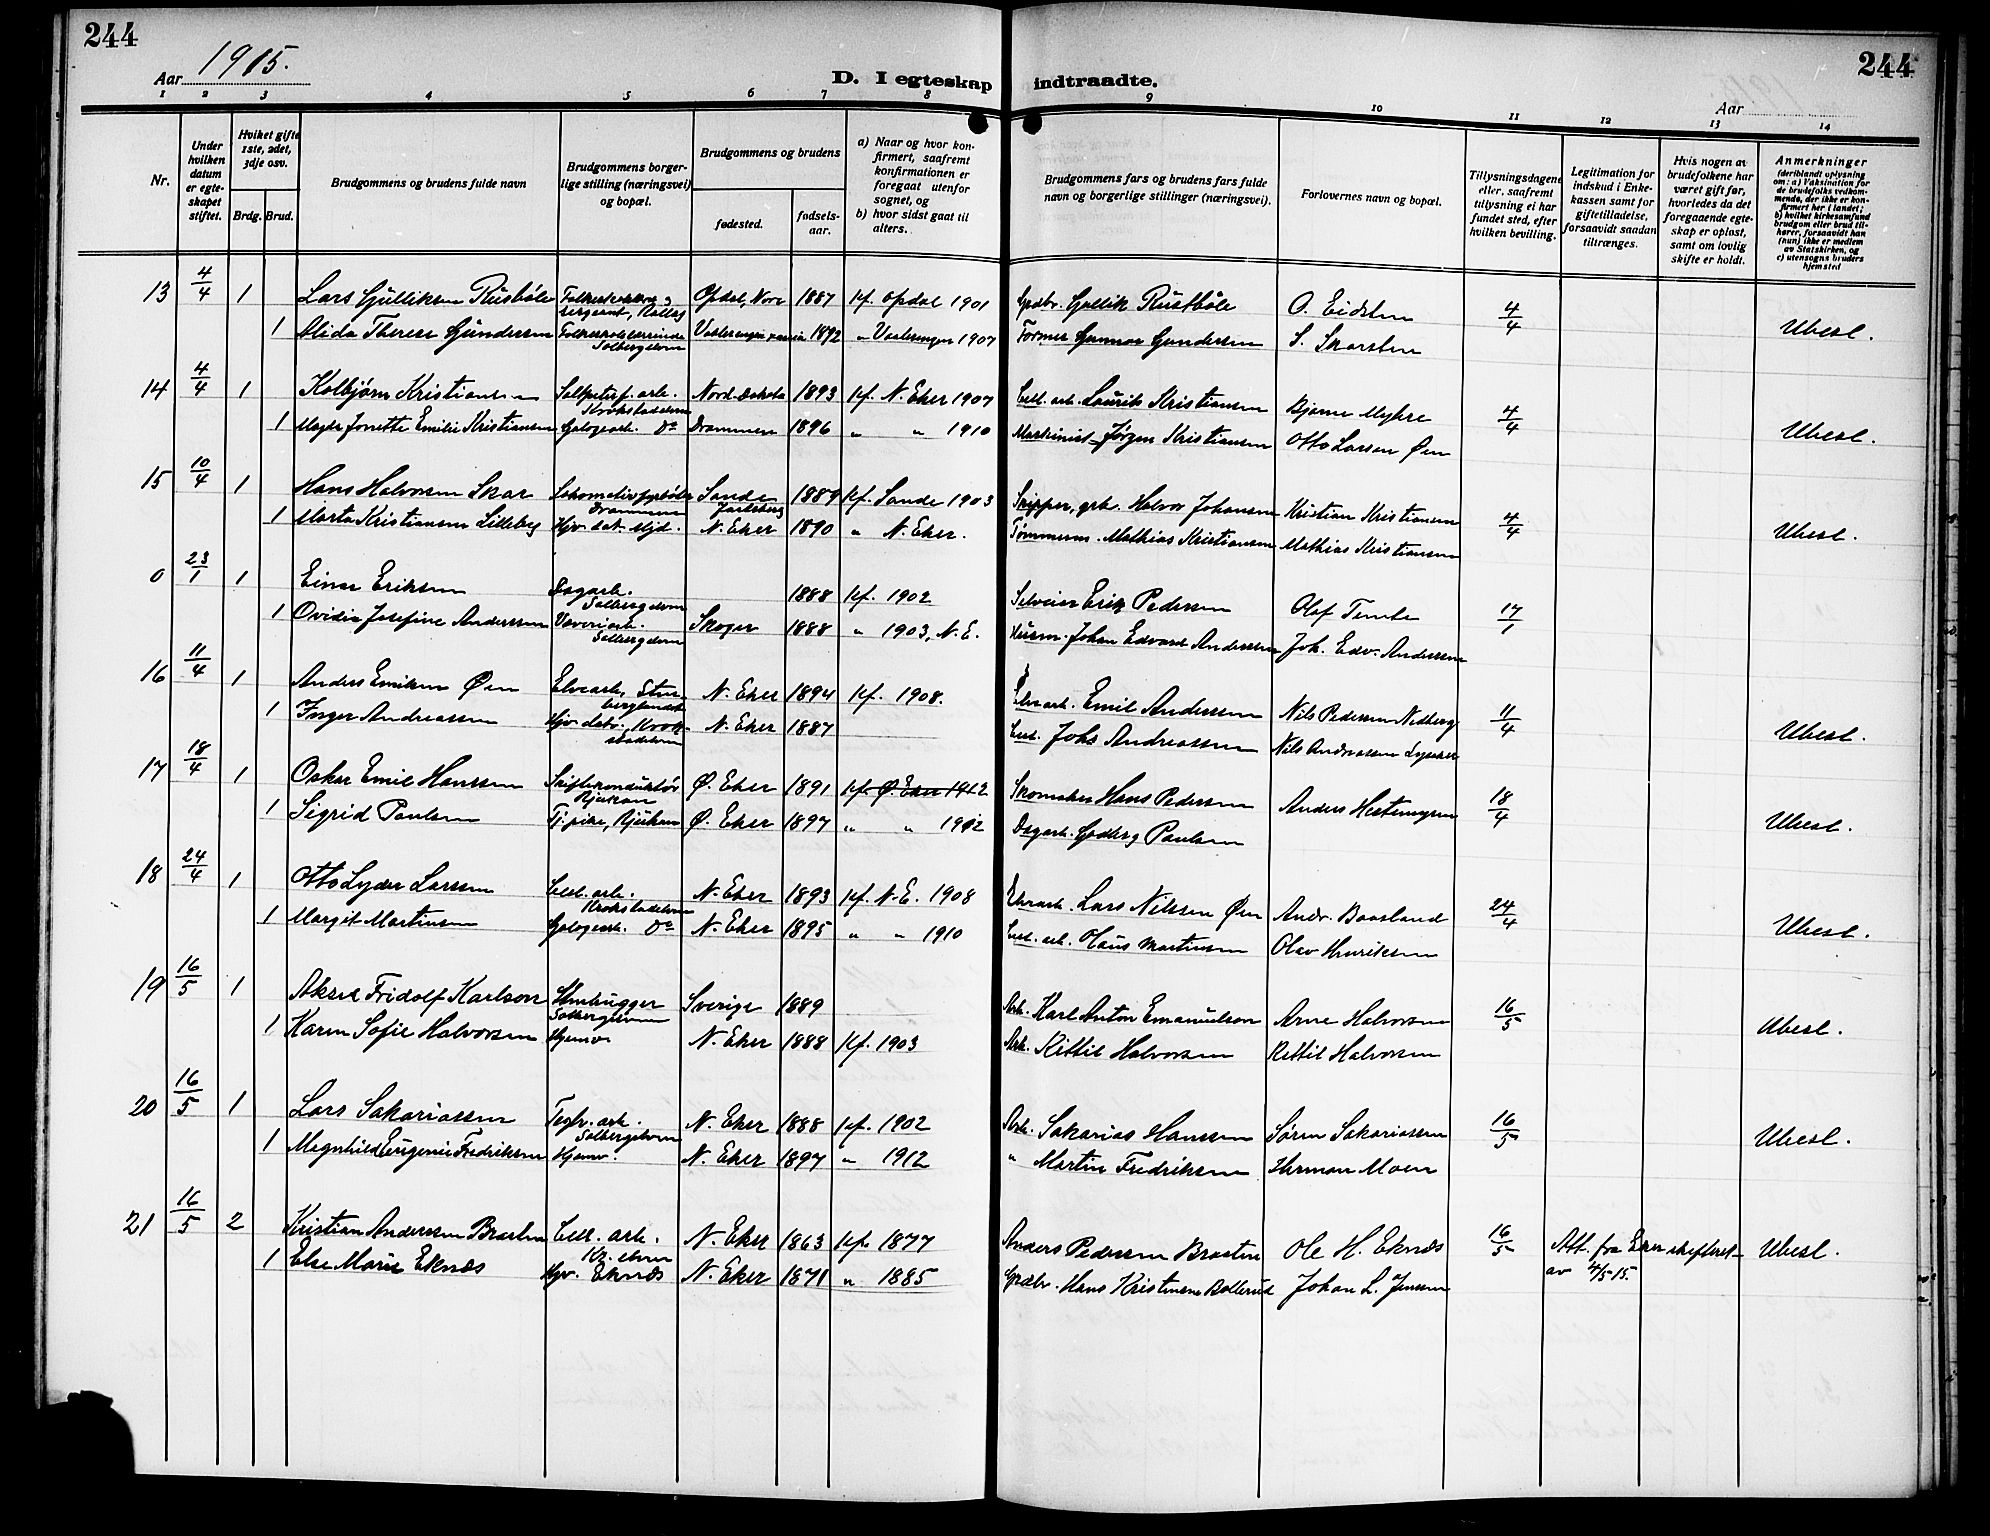 244
244
Aar 1915.
D. I egteskap indtraadte.
Aar
1 2 3 4 5 6 7 8 9 10 11 12 13 14
Nr.
Under hvilken datum er egteskapet stiftet.
Hvilket gifte 1ste, 2det, 3dje osv.
Brdg. Brud.
Brudgommens og brudens fulde navn
Brudgommens borgerlige stilling (næringsvei) og bopæl.
Brudgommens og brudens
fødested.
fødselsaar.
a) Naar og hvor konfirmert, saafremt konfirmationen er foregaat utenfor sognet, og
b) hvor sidst gaat til alters.
Brudgommens fars og brudens fars fulde navn og borgerlige stillinger (næringsvei).
Forlovernes navn og bopæl.
Tillysningsdagene eller, saafremt tillysning ei har fundet sted, efter hvilken bevilling.
Legitimation for indskud i Enkekassen samt for giftetilladelse, forsaavidt saadan tiltrænges.
Hvis nogen av brudefolkene har været gift før, hvorledes da det foregaaende egteskap er opløst, samt om lovlig skifte er holdt.
Anmerkninger (deriblandt oplysning om: a) Vaksination for de brudefolks vedkommende, der ikke er konfirmert her i landet; b) hvilket kirkesamfund brudgom eller brud tilhører, forsaavidt han (hun) ikke er medlem av Statskirken, og c) utensogns bruders hjemsted
13 4/4 1 Lars Gulliksen Rusbøle Opdal, Nore 1887 kf. Opdal 1901 Gpdbr. Gullik Rustbøle O. Eidsten 4/4
1 Alida Therese Gundersen Folkeskolelærerinde Solbergelven 1892 " Vaalerengen 1907 Former Gunnar Gundersen S. Skarsten Ubesl.
14 4/4 1 Kolbjørn Kristiansen Krokstadelven Nord-Dakota 1893 kf. N. Eker 1907 Cell. arb. Laurits Kristiansen Bjarne Myhre 4/4
1 Emilie Kristiansen Do Drammen 1896 " " 1910 Maskinist Jørgen Kristiansen Otto Larsen Øen Ubesl.
15 10/4 1 Hans Halvorsen Skar Lokomotivfyrbøter Drammen Sande Jarlsberg 1889 kf. Sande 1903 Skipper, grb. Halvor Johansen Kristian Kristiansen 4/4
1 Marta Kristiansen Lilleby Hjv. dat. Mjd. N. Eker 1890 " N. Eker. Tømmerm. Mathias Kristiansen Mathias Kristiansen Ubesl.
0 23/1 1 Einar Eriksen Dagarb. Solbergelven 1888 kf. 1902 Erik Pedersen Olaf Tembe 17/1
1 Ovidia Josefine Anderssen Væveriarb. Solbergelven Skoger 1888 " 1903, N. E. Husm. Johan Edvard Anderssen Joh. Edv. Anderssen
16 11/4 1 Anders Emilsen Øen Elvearb. N. Eker 1894 kf. 1908. Elvearb. Emil Anderssen Nils Pedersen Nedberg 11/4
1 Inger Andreassen Hjv. datr. Krokstadelven N. Eker 1887 Johs Andreassen Nils Andreassen Ubesl.
17 18/4 1 Oskar Emil Hanssen Skiftekonduktør Rjukan Ø. Eker 1891 kf. Ø. Eker 1912 Skomaker Hans Pedersen Anders Hestemyren 18/4
1 Sigrid Paulsen Tj. pike, Rjukan Ø. Eker 1897 " " 1912 Dagarb. Gudberg Paulsen Ubesl.
18 24/4 1 Otto Lyder Larssen Cell. arb. Krokstadelven N. Eker 1893 kf. N. E. 1908 Elvearb. Lars Nilssen Øen Andr. Baasland 24/4
1 Margit Martinsen Do N. Eker 1895 " " 1910 Cell. arb. Hans Martinsen Olav Henriksen Ubesl.
19 16/5 1 Aksel Fridolf Karlson Stenhugger Solbergelven Sverige 1889 Arb. Karl Anton Emanuelson Arne Halvorsen 16/5
1 Karen Sofie Halvorsen Hjemv. N. Eker 1888 kf. 1903 Arb. Kittil Halvorsen Kittil Halvorsen Ubesl.
20 16/5 1 Lars Sakariassen Teglv. arb. Solbergelven N. Eker 1888 kf. 1902 Arb. Sakarias Hanssen Søren Sakariassen 16/5
1 Magnhild Eugenie Fredriksen Hjemv. N. Eker 1897 " 1912 " Martin Fredriksen Herman Moen Ubesl.
21 16/5 2 Kristian Anderssen Braaten Cell. arb. Kr. elven N. Eker 1863 kf. 1877 Anders Pedersen Braaten Ole H. Eknæs 16/5 Att. fra Eker skifteret av 4/5 15. Ubesl.
1 Else Marie Eknæs Hjv. Eknæs N. Eker 1871 " 1885 Gpdbr. Hans Kristensen Bollerud Johan L. Jenssen